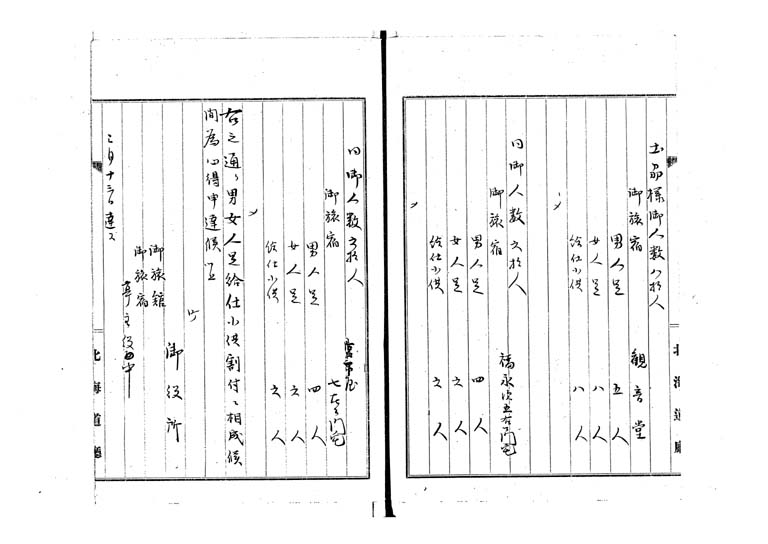 土州様御人数六拾人
御旅宿 観音堂
男人足 五人
女人足 八人
給仕小供 八人
〆
同御人数六拾人
御旅宿 福永次五右衛門宅
男人足 四人
女人足 六人
給仕小供 六人
〆
北海道庁
同御人数六拾人
御旅宿 七左衛門宅
男人足 四人
女人足 六人
給仕小供 六人
〆
右之通り男女人足給仕小供割付ニ相成候
間為心得申達候以上
御役所
御旅館
御旅宿
亭主役中
二月十三日達ス
北海道廳